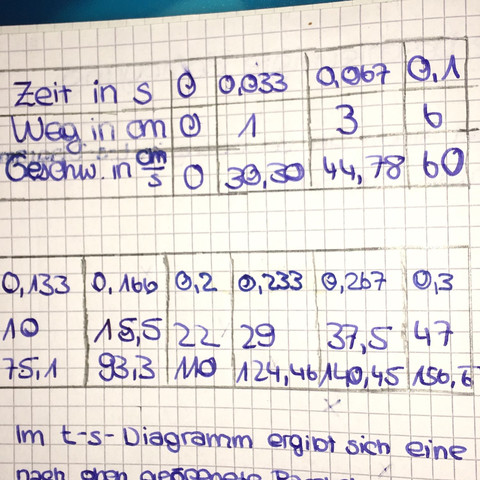 Zeit in s 0 0,033 0,067 0,1
Weg in cm 0 1 3 6
Geschw. in cm/s 0 30,30 44,78 60
0,133 0,166 0,2 0,233 0,267 0,3
10 15,5 22 29 37,5 47
75,1 93,3 110 124,46 140,45 156,6
Im t-s-Diagramm ergibt sich eine
nach oben geöffnete